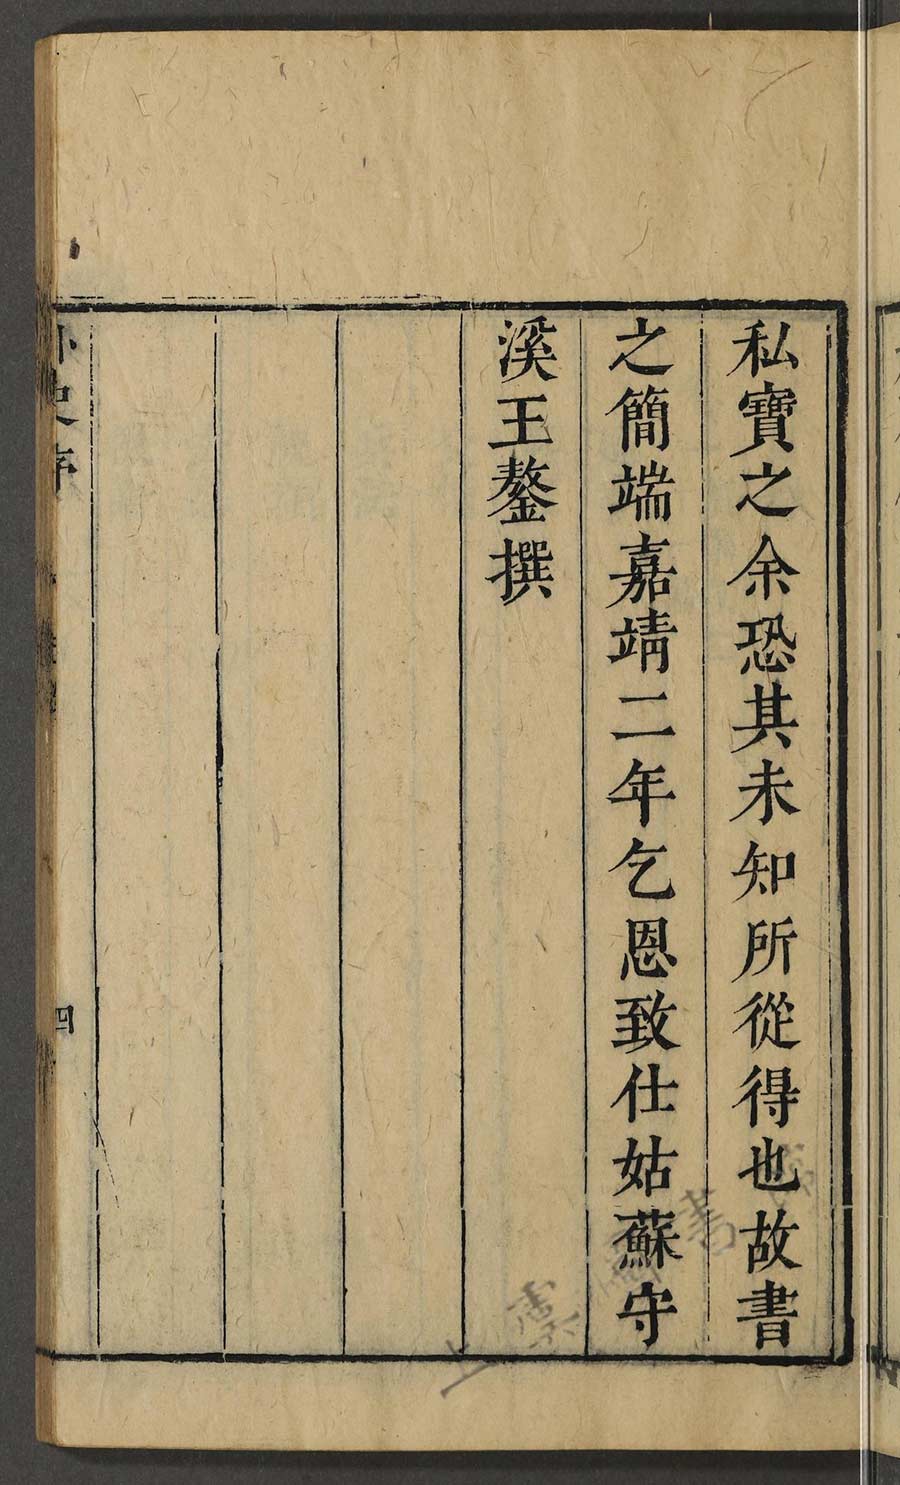 私寶之余恐其未知所從得也故書
之簡端嘉靖二年乞恩致仕姑蘇守
溪王鏊撰
四